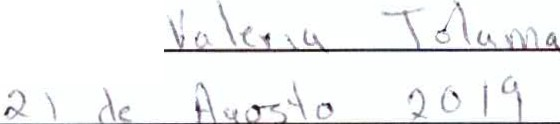 Valeria Toluma
21 de Agosto 2019